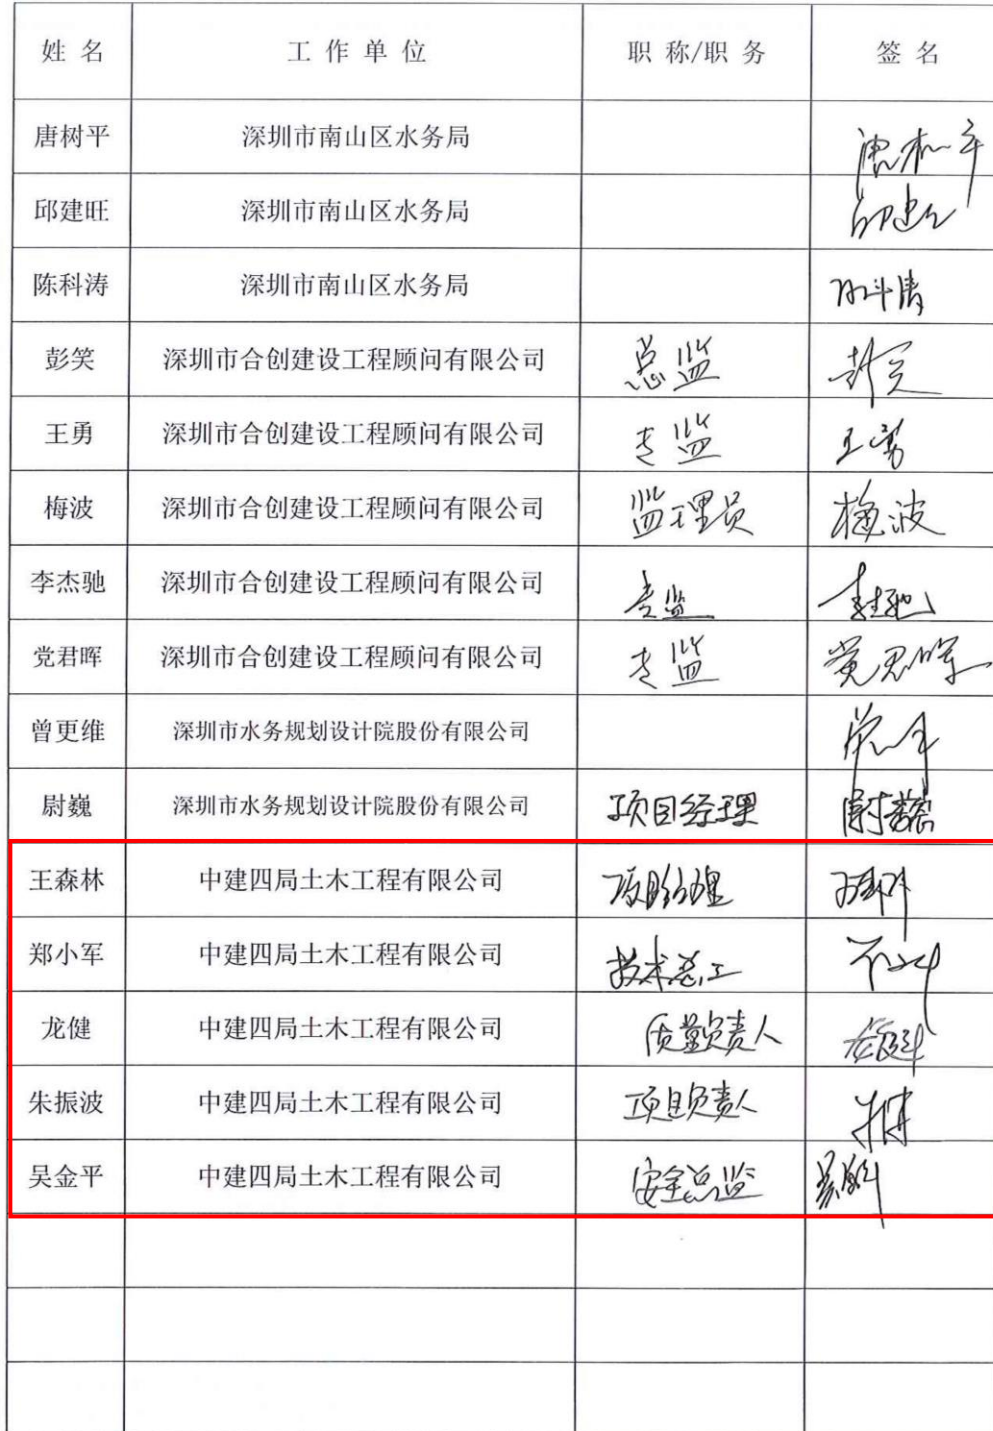 姓 名 工 作 单 位 职 称/职 务 签 名
唐树平 深圳市南山区水务局
邱建旺 深圳市南山区水务局
陈科涛 深圳市南山区水务局
彭笑 深圳市合创建设工程顾问有限公司 总监 彭笑
王勇 深圳市合创建设工程顾问有限公司 专监 王勇
梅波 深圳市合创建设工程顾问有限公司 监理员 梅波
李杰驰 深圳市合创建设工程顾问有限公司 专监 李杰驰
党君晖 深圳市合创建设工程顾问有限公司 专监 党君晖
曾更维 深圳市水务规划设计院股份有限公司
尉巍 深圳市水务规划设计院股份有限公司 项目经理 尉巍
王森林 中建四局土木工程有限公司 项目经理
郑小军 中建四局土木工程有限公司 技术总工
龙健 中建四局土木工程有限公司 质量负责人 龙健
朱振波 中建四局土木工程有限公司 项目负责人
吴金平 中建四局土木工程有限公司 安全总监